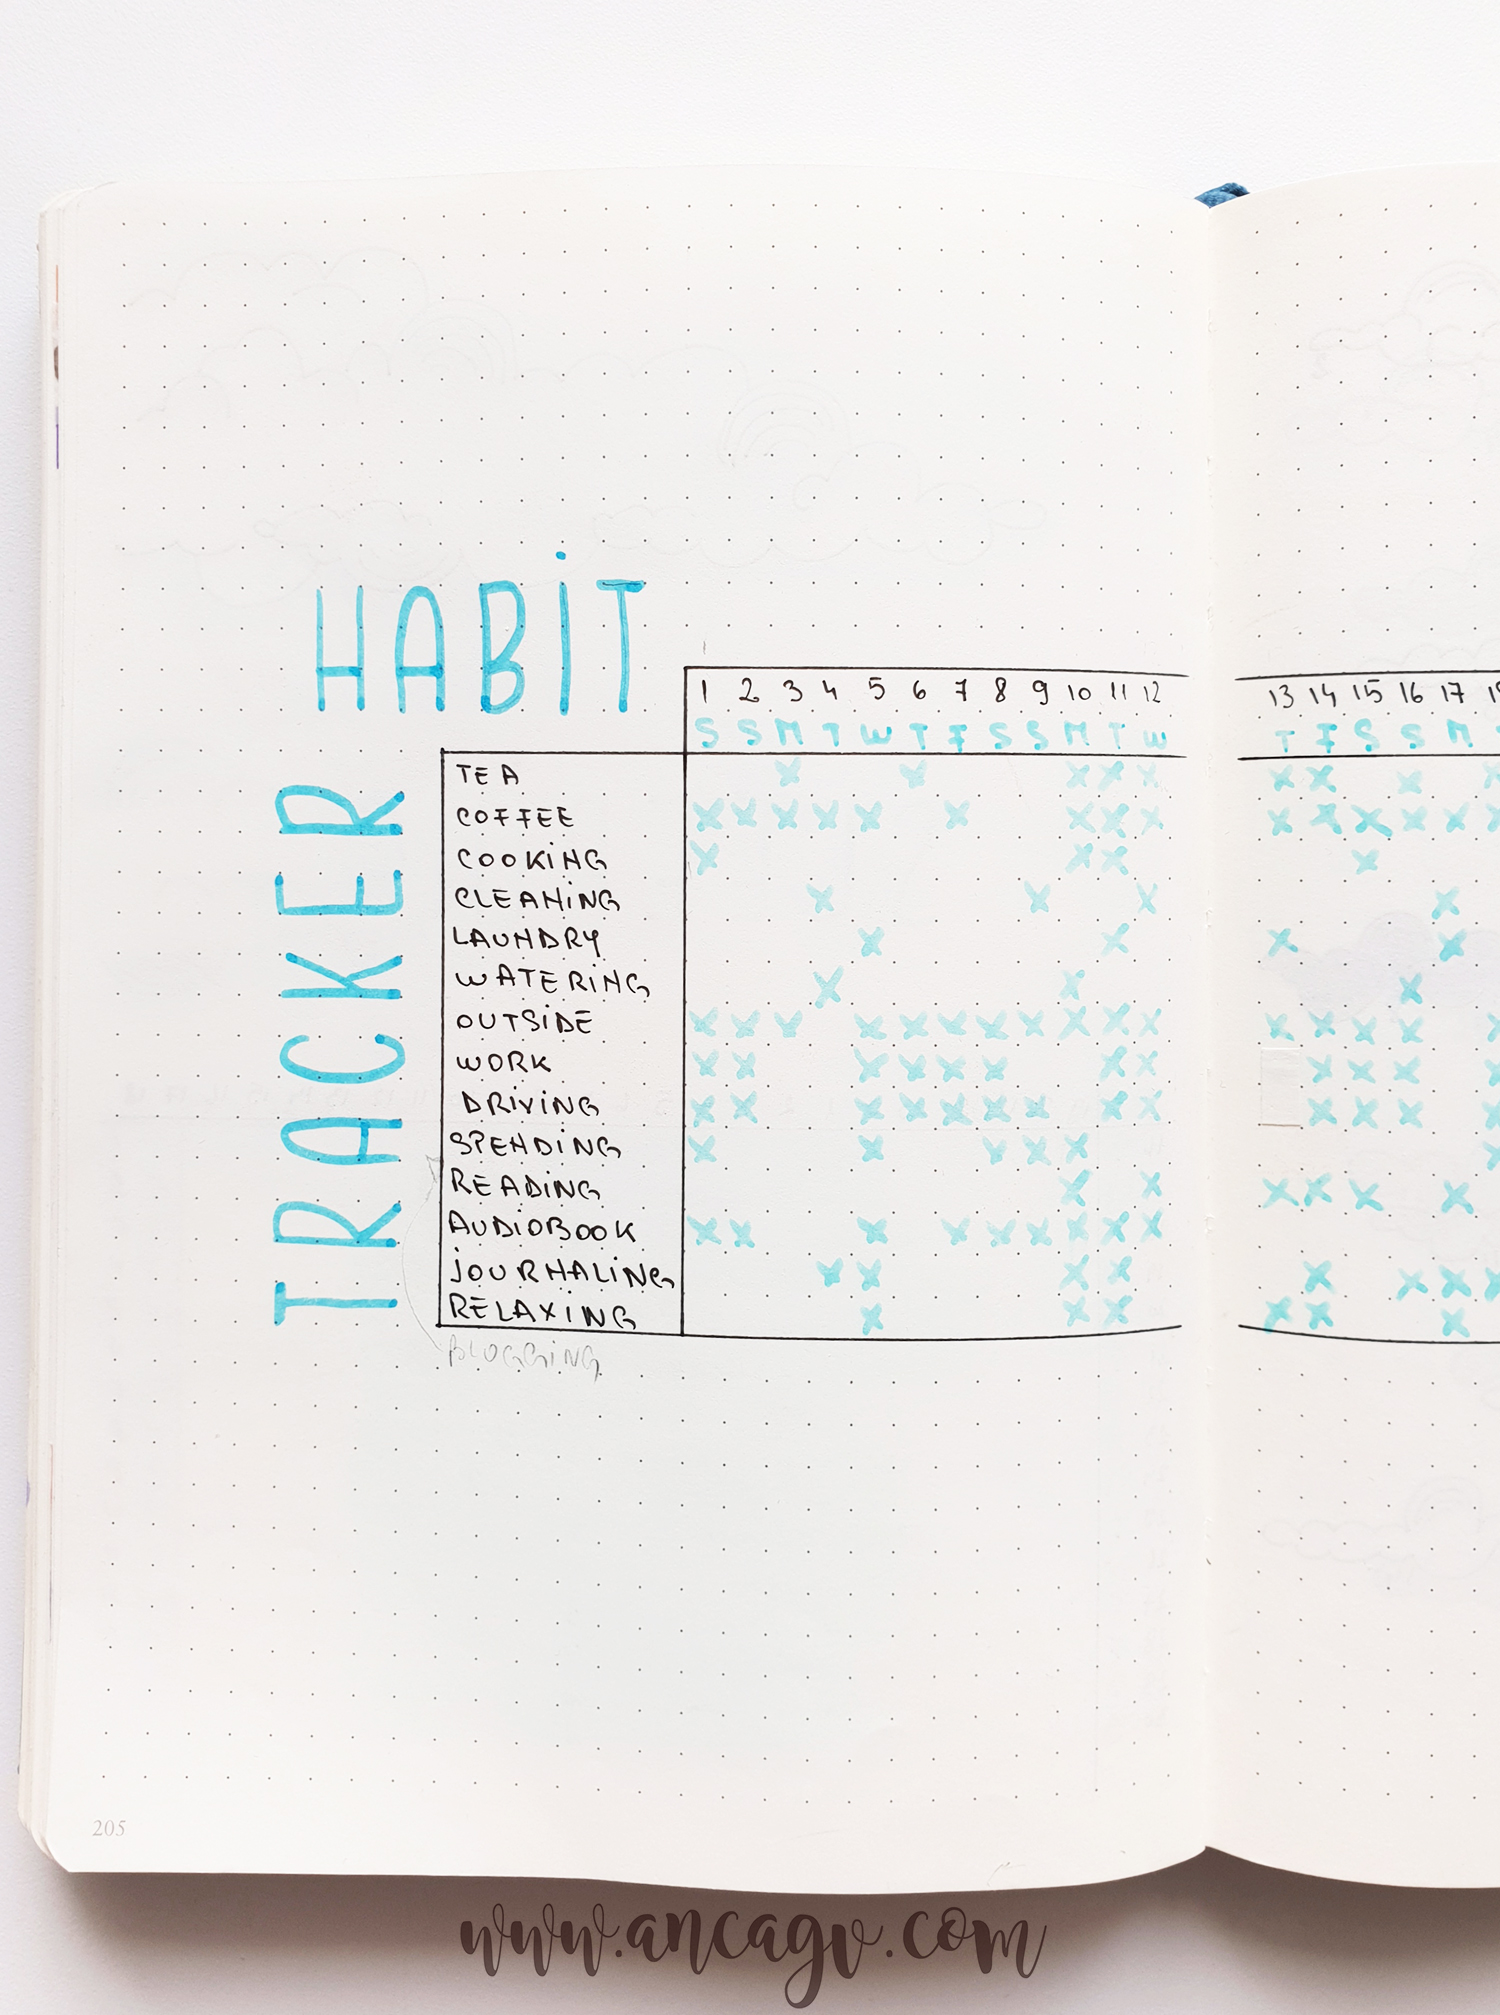 HABIT
TRACKER
1 2 3 4 5 6 7 8 9 10 11 12 13 14 15 16 17
S S M T W T F S S M T W T F S S M
TEA X X X X X X X X
COFFEE X X X X X X X X X X X X X X X
COOKING X X X X
CLEANING X X X X
LAUNDRY X X X X
WATERING X X X
OUTSIDE X X X X X X X X X X X X X X X
WORK X X X X X X X X X X X X
DRIVING X X X X X X X X X X X X
SPENDING X X X X X X
READING X X X X X X
AUDIOBOOK X X X X X X X X X
JOURNALING X X X X X X X X
RELAXING X X X X X X
BLOGGING
205
www.ancagv.com